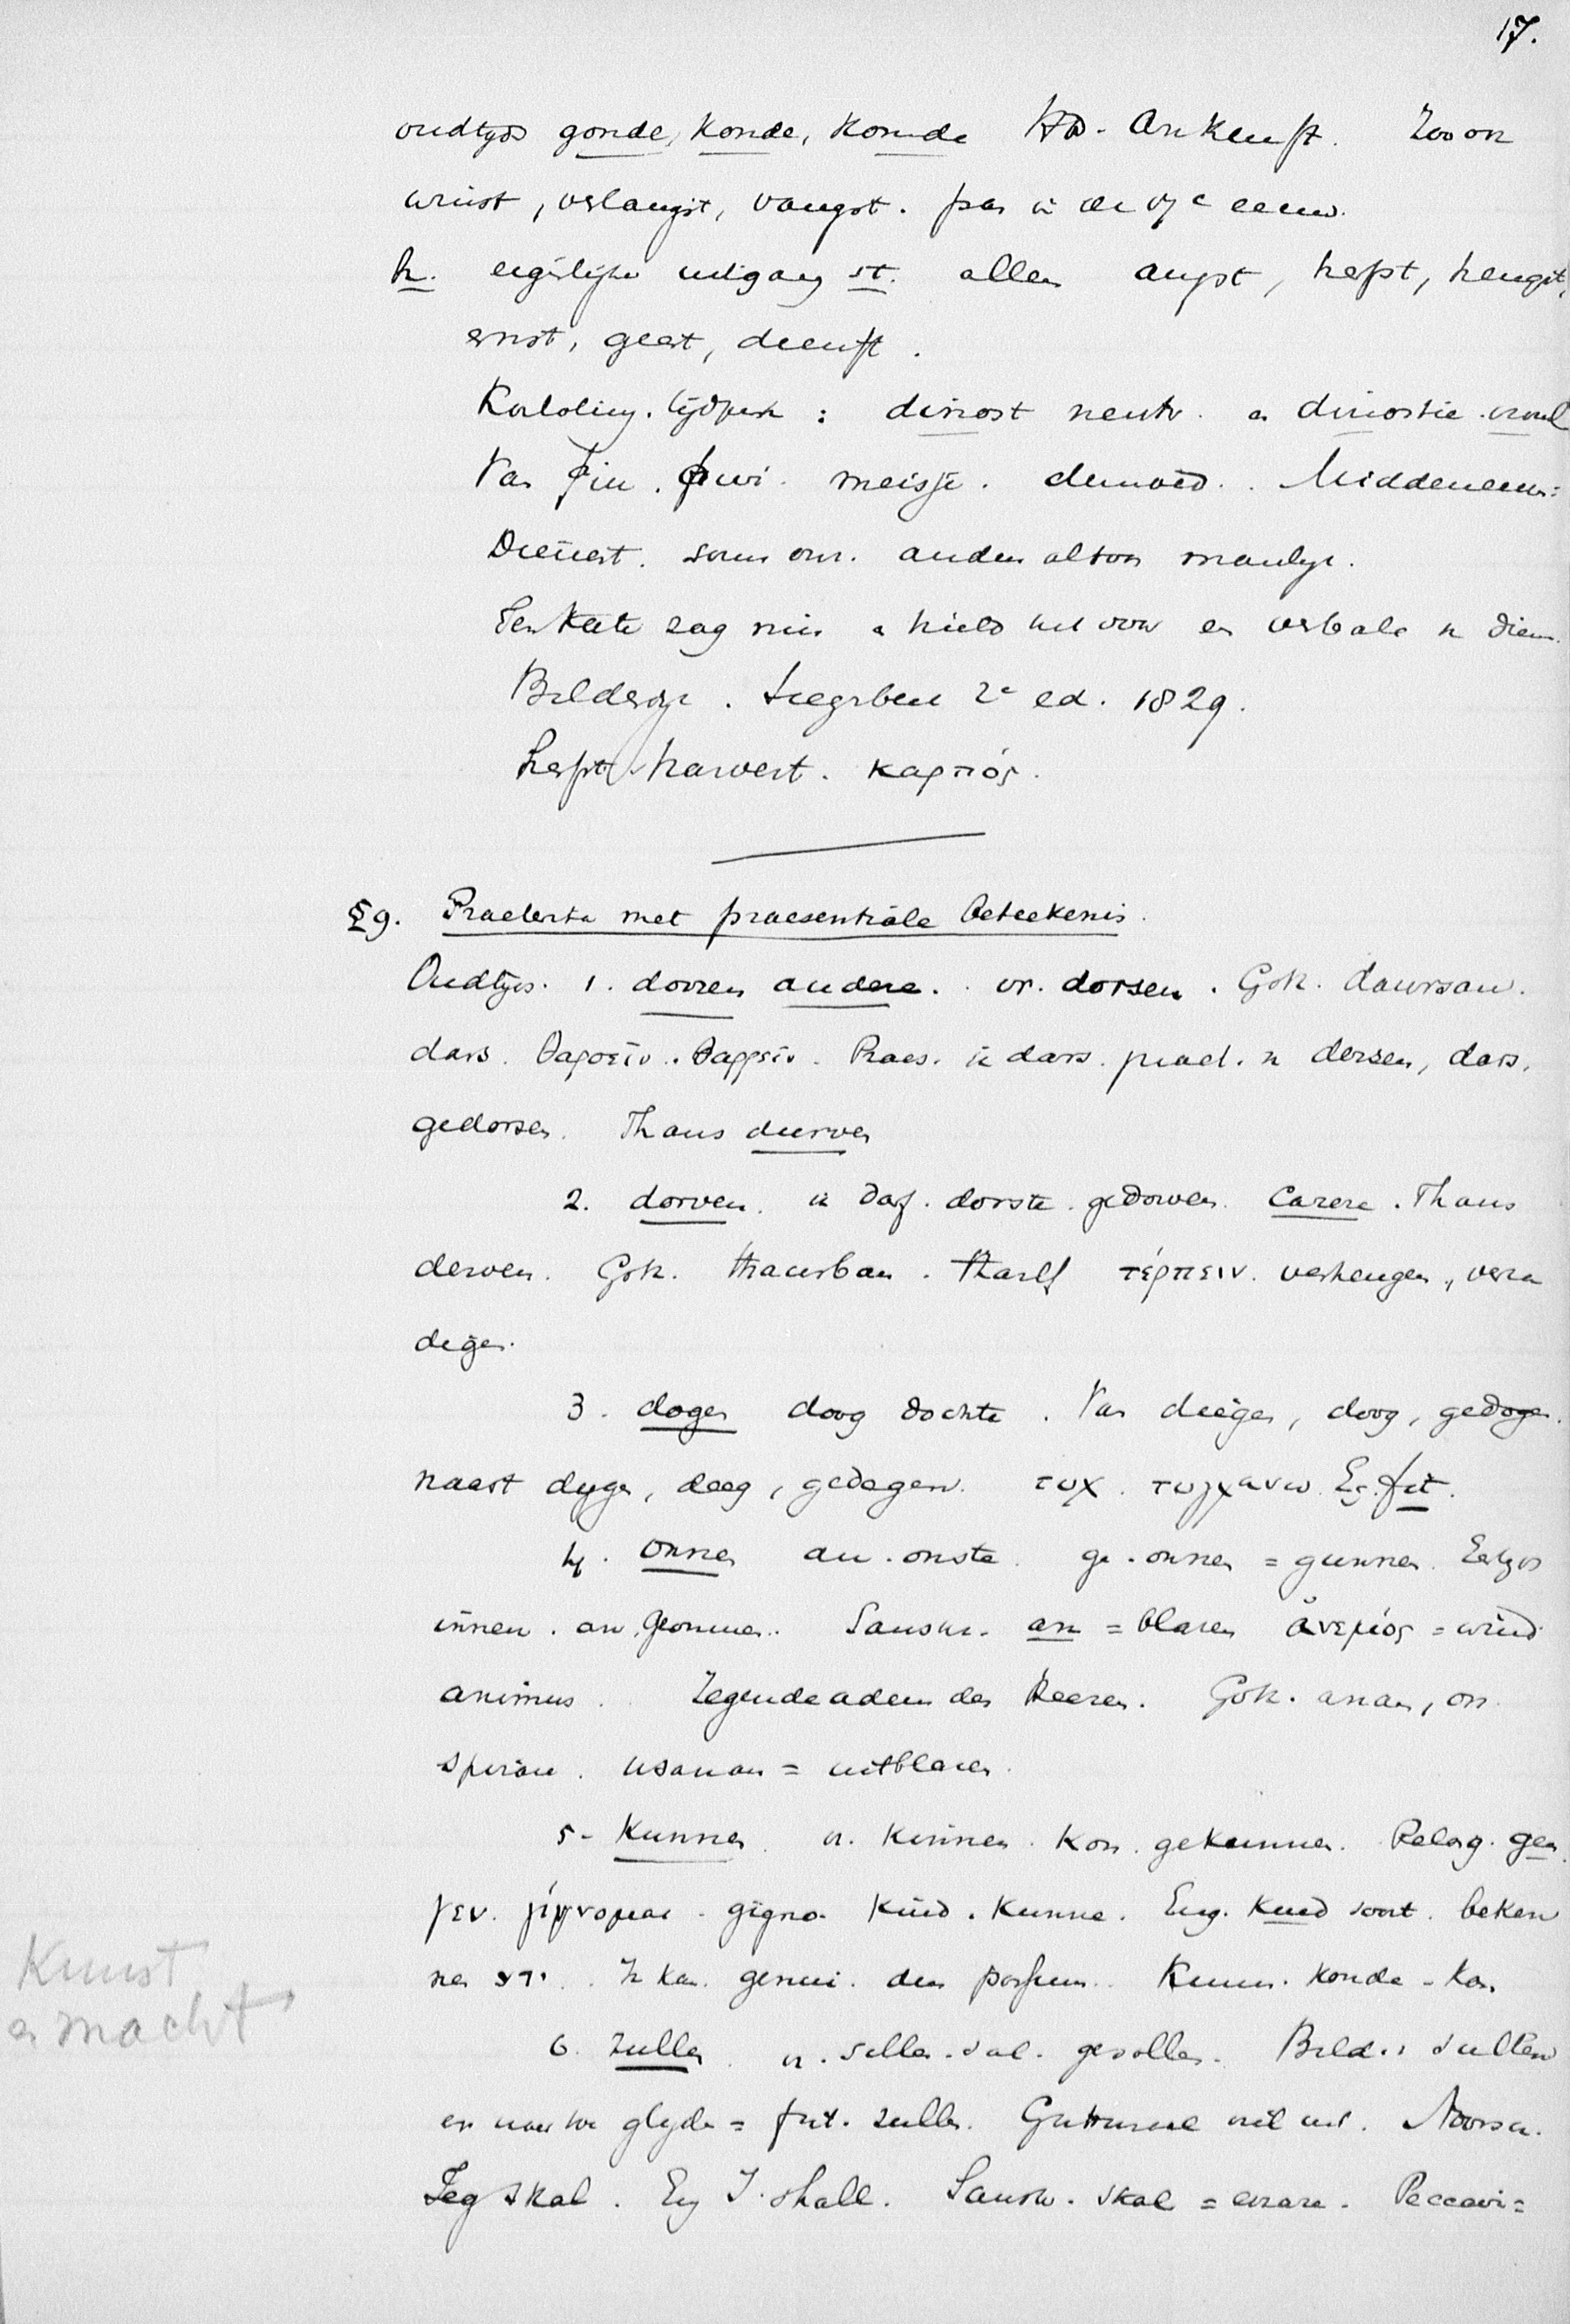 17.
oudtyds gonde, konde, konde HD. Ankunft. Zoo ook
winst, verlangst, vangst. pas in de 17e eeuw.
h. eigenlijke uitgang st. alleen angst, herfst, hengst,
ernst, geest, dienst.
Karoling. tijdperk : dinost neutr. en dinostie vrouwl
Van þiu. þiwi. meisje. demoed. Middeneeuw:
Dienest. soms onz. anders altoos manlyk.
Ten Kate zag mis & hield het voor een verbale v dien.
Bilderdyk. Geslachten 2e ed. 1829.
herfst harvest. καρπός.
§9. Praeterita met praesentiale beteekenis.
Oudtyds. 1. dorren audere. vr. dorsen. Goth. daursan.
dars. θαρσεῖν. θαρρεῖν. Praes. ik dars. praet. v dersen, dars,
gedorsen. Thans durven
2. dorven. ik darf. dorste. gedorven. carere. Thans
derven. Goth. thaurban. tharf τέρπειν. verheugen, verza
digen.
3. dogen doog dochte. Van diegen, doog, gedogen.
naast dygen, deeg, gedegen. τυχ. τυγχανω Eg. fit.
4. onnen an. onste. ge-onnen = gunnen. Eertyds
innen. an. geonnen. Sanskr. an = blazen ἄνεμός = wind
animus. Zegende adem des Heeren. Goth. anan, on
spiran. usanan = uitblazen.
5. Kunnen. v. kinnen. kon. gekunnen. Pelasg. gen
γεν. γίγνομαι. gigno. Kind. Kunne. Eng. Kind soort. beken
nen ידע. Ik kan. genui. dus possum. Kunnen. konde - kon.
Kunst
en macht
6. Zullen. v. sillen. sal. gesollen. Bild.: sullen
en naar toe glyden = fut. zullen. Gutturaal viel uit. Noorsch.
Jeg skal. Eng I shall. Sanskr. skal = errare. Peccavi =